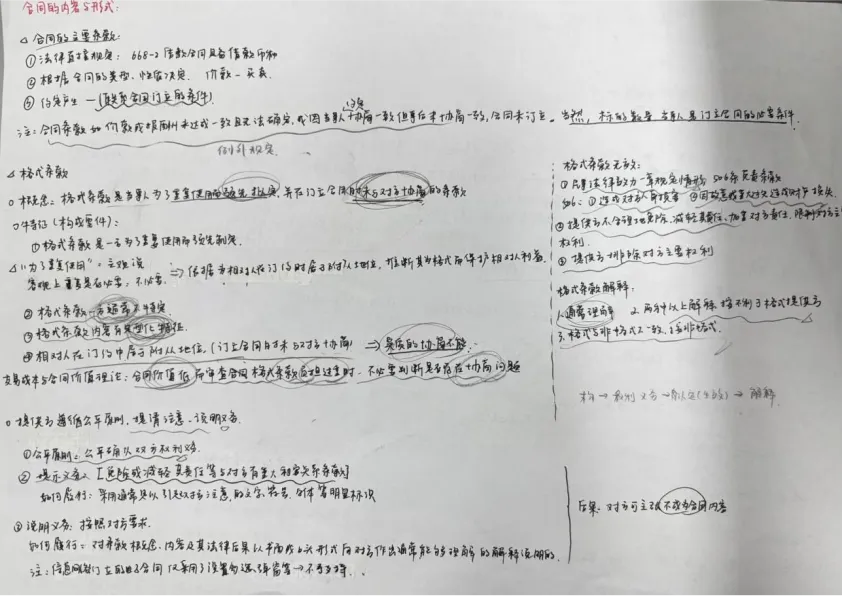 合同的内容与形式:
△合同的主要条款:
①法律直接规定: 668-2 借款合同具备借款币种
②根据合同的类型、性质决定. 价款—买卖
③约定产生—
注: 合同条款如价款或报酬未达成一致且无法确定, 或因当事人约定协商一致但事后未协商一致, 合同未订立. 当然, 标的数量 当事人是订立合同的必要条件.
例外规定
△格式条款
○概念: 格式条款是当事人为了重复使用而预先拟定, 并在订立合同时未与对方协商的条款
○特征(构成要件):
①格式条款是一方为了重复使用而预先制定.
△"为了重复使用" = 主观说
客观上重复是否必要: 不必要.
⇒依据当相对人在订约时居于附从地位, 推断其为格式而保护相对人利益.
②格式条款一方通常不特定.
③格式条款内容具定型化特征.
④相对人在订约中居于附从地位. (订立合同时未与对方协商) ⇒ 具体的协商不能.
交易成本与合同价值理论: 合同价值低 而审查合同格式条款负担过重时, 不必要判断是否存在协商问题
○提供方遵循公平原则, 提请注意、说明义务.
①公平原则: 公平确认双方权利义务.
②提示义务 [免除或减轻其责任等与对方有重大利害关系条款]
如何履行: 采用通常足以引起对方注意的文字、符号、字体等明显标识
③说明义务: 按照对方要求.
如何履行: 对条款概念、内容及其法律后果以书面或口头形式向对方作出通常能够理解的解释说明的.
注: 信息网络订立的电子合同 仅采用了设置勾选、弹窗等→不予支持.
格式条款无效:
①民事法律行为一章规定情形 506条免责条款
506: ①造成对方人身损害 ②因故意或重大过失造成对方损失.
②提供方不合理地免除、减轻其责任、加重对方责任、限制对方主要
权利.
③提供方排除对方主要权利
格式条款解释:
1.通常理解 2.两种以上解释, 按不利于格式提供方
3.格式与非格式不一致, 适非格式.
→ 权利义务 → → 解释
后果: 对方可主张不成为合同内容